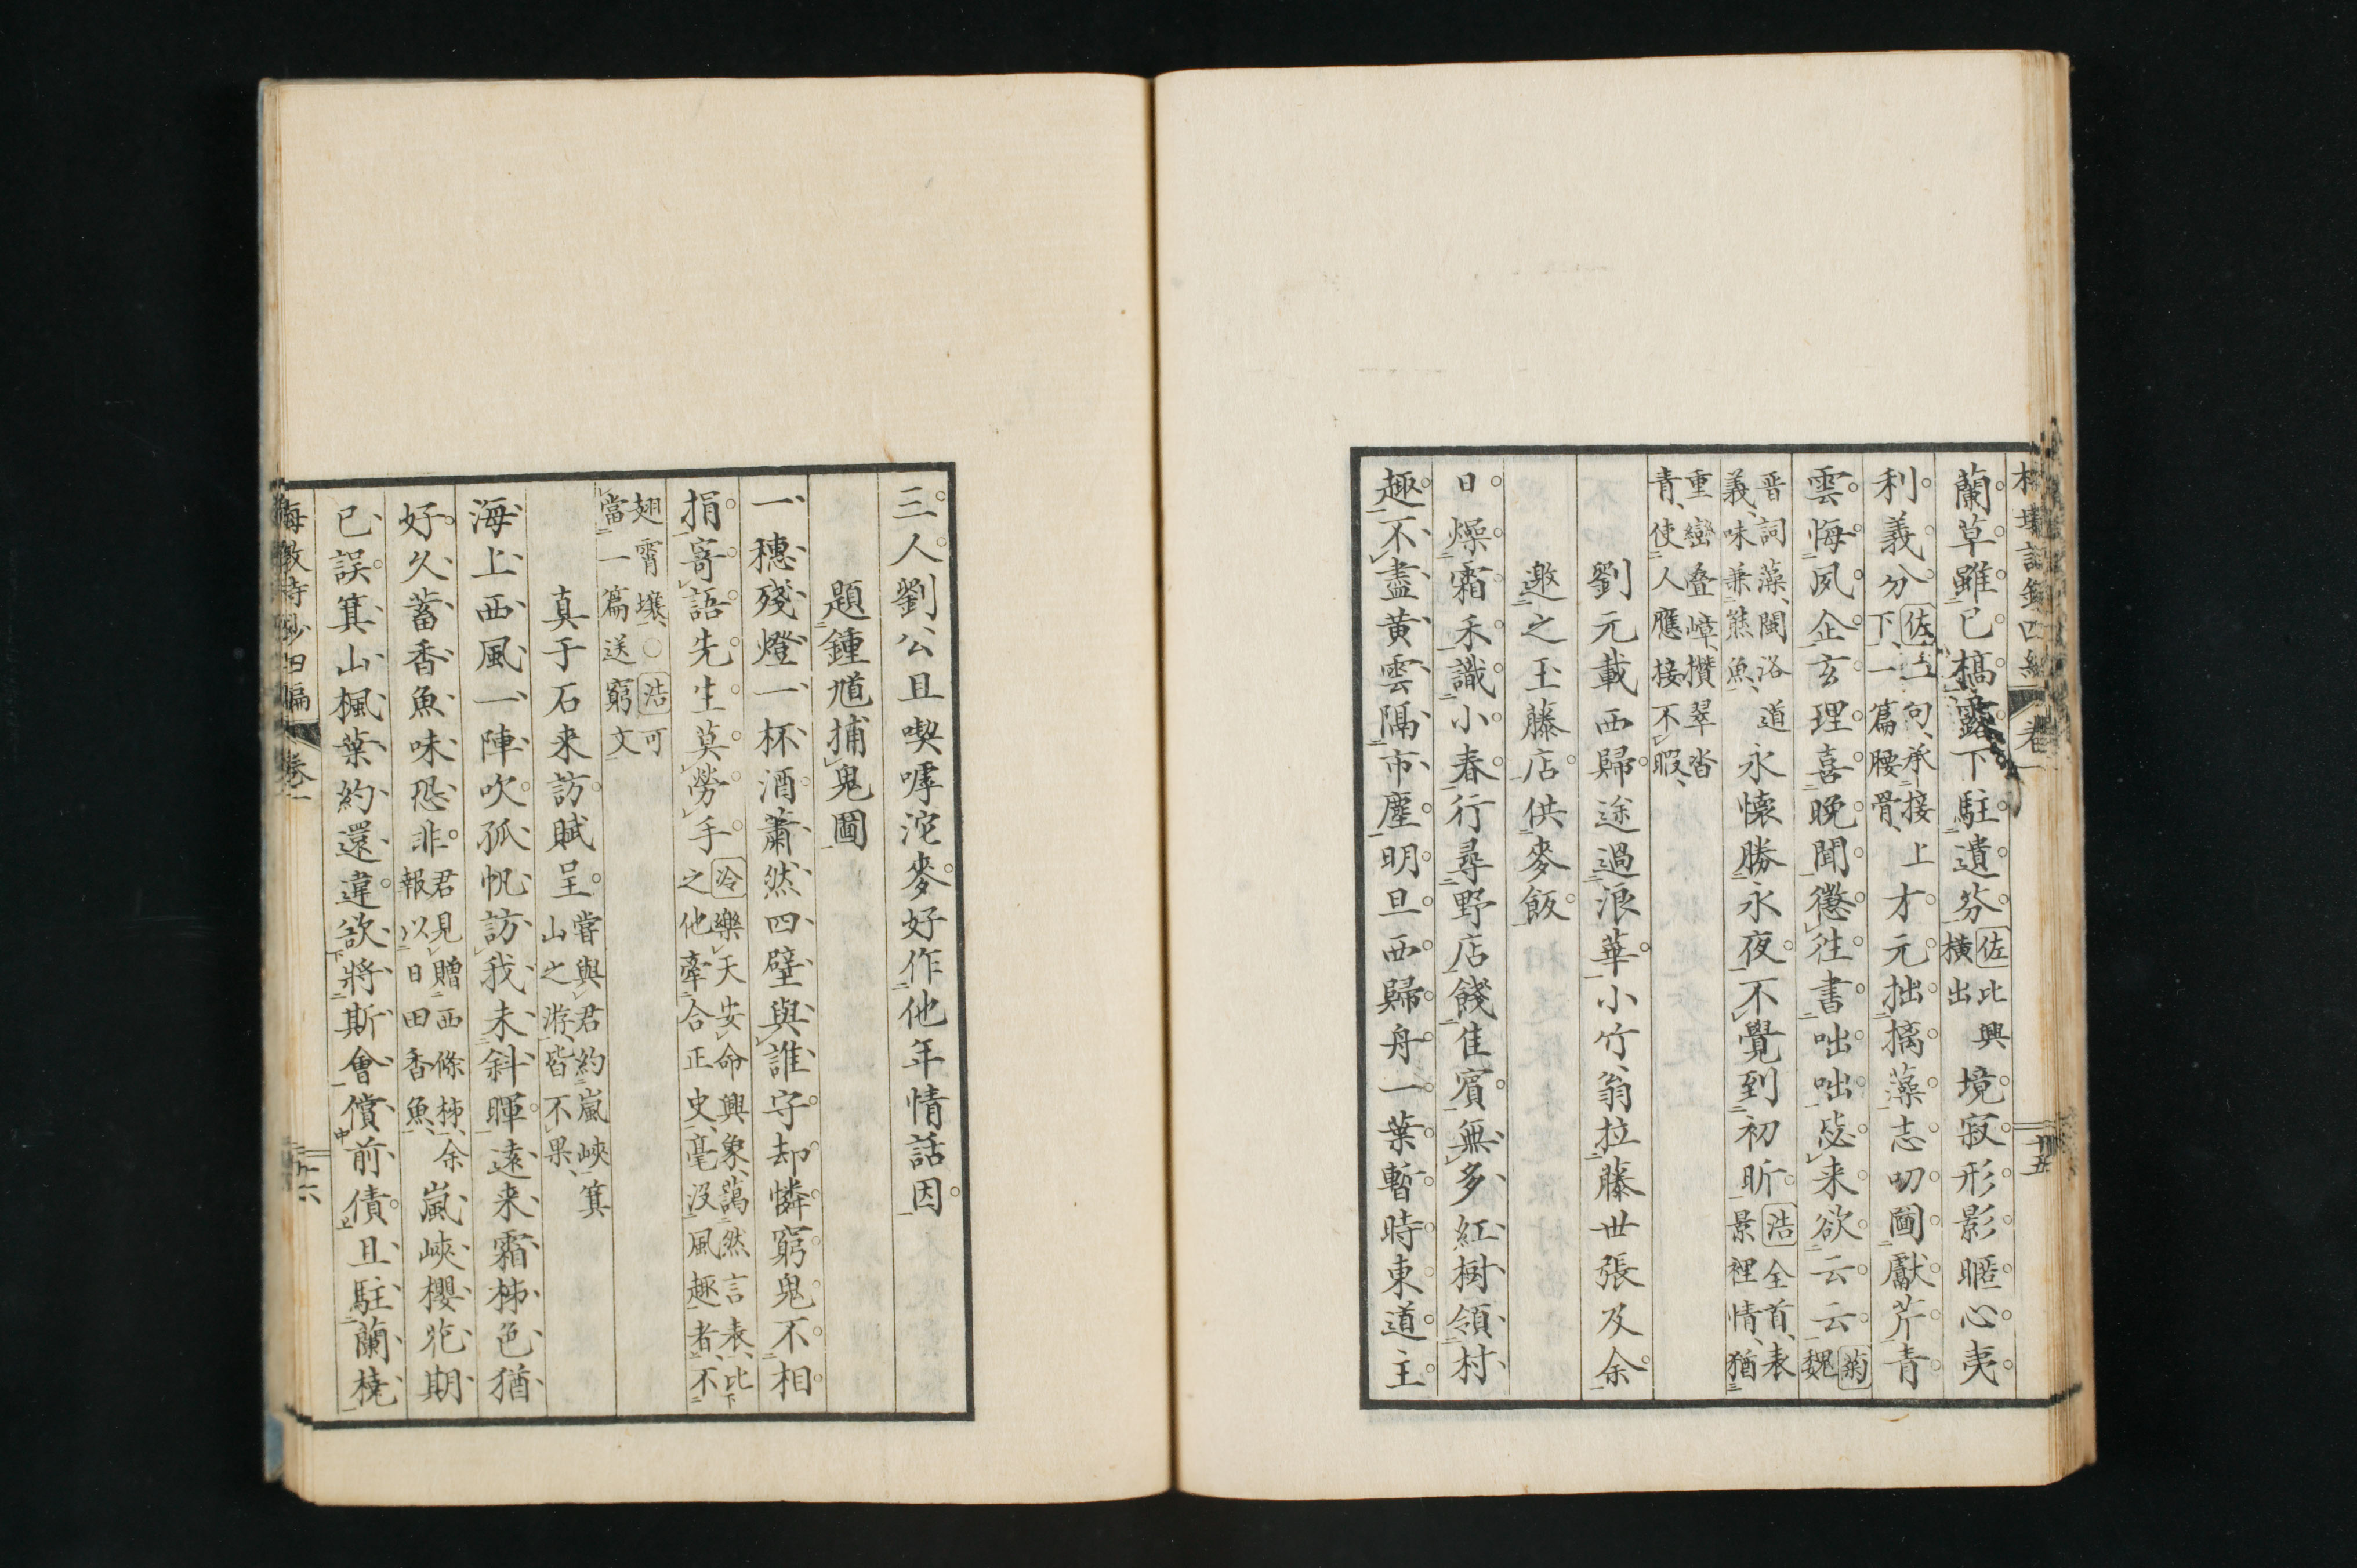 蘭草雖已槁露下駐遺芬佐比興橫出境寂形影暱心夷
利義分佐上句承接上下一篇腰骨才元拙摛藻志叨圖獻芹青
雲悔夙企玄理喜晚聞懲往書咄咄毖来欲云云菊魏
晋詞藻閩洛道義味兼熊魚永懷勝永夜不覺到初昕浩全首表景裡情猶
重巒叠嶂攅翠沓青使人應接不暇
劉元載西歸途過浪華小竹翁拉藤世張及余
邀之王藤店供麥飯
日燥霜禾識小春行尋野店餞隹賓無多紅樹領村
趣不盡黄雲隔市塵明旦西歸舟一葉暫時東道主
三人劉公且喫嘑沱麥好作他年情話因
題鍾馗捕鬼圖
一穗殘燈一杯酒蕭然四壁與誰守却憐窮鬼不相
捐寄語先生莫勞手冷樂天安命興象藹然言表比之他牽合正史毫没風趣者不
翅霄壤○浩可當一篇送窮文
真子石来訪賦呈嘗與君約嵐峽箕山之游皆不果
海上西風一陣吹孤帆訪我未斜暉遠来霜柹色猶
好久蓄香魚味恐非君見贈西條柹余報以日田香魚嵐峽櫻花期
已誤箕山楓葉約還違欲將斯會償前債且駐蘭橈
海敎詩鈔四編 卷一 十六